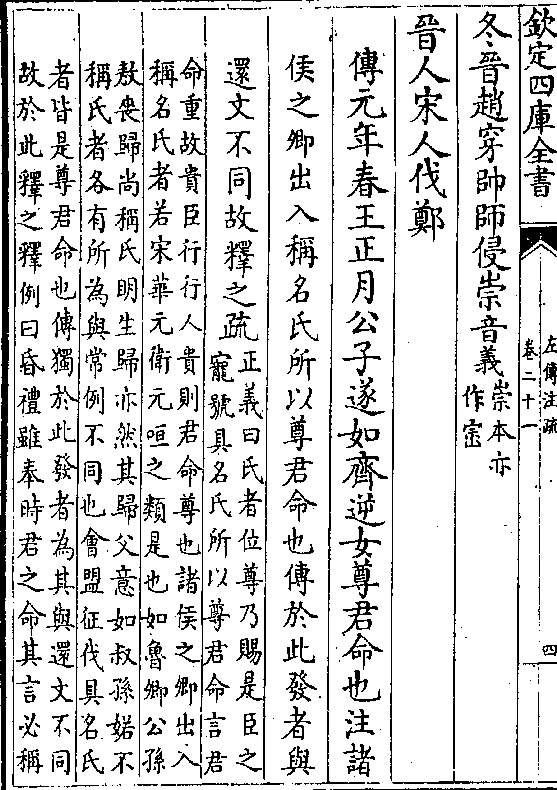 欽定四庫全書
左傳注疏
卷二十一
四
冬晉趙穿帥師侵崇音義崇本亦
作密
晉人宋人伐鄭
傳元年春王正月公子遂如齊逆女尊君命也注諸
侯之卿出入稱名氏所以尊君命也傳於此發者與
還文不同故釋之疏正義曰氏者位尊乃賜是臣之
寵號具名氏所以尊君命言君
命重故貴臣行行人貴則君命尊也諸侯之卿出入
稱名氏者若宋華元衛元咺之類是也如魯卿公孫
敖喪歸尚稱氏明生歸亦然其歸父意如叔孫婼不
稱氏者各有所為與常例不同也會盟征伐具名氏
者皆是尊君命也傳獨於此發者為其與還文不同
故於此釋之釋例曰昏禮雖奉時君之命其言必稱